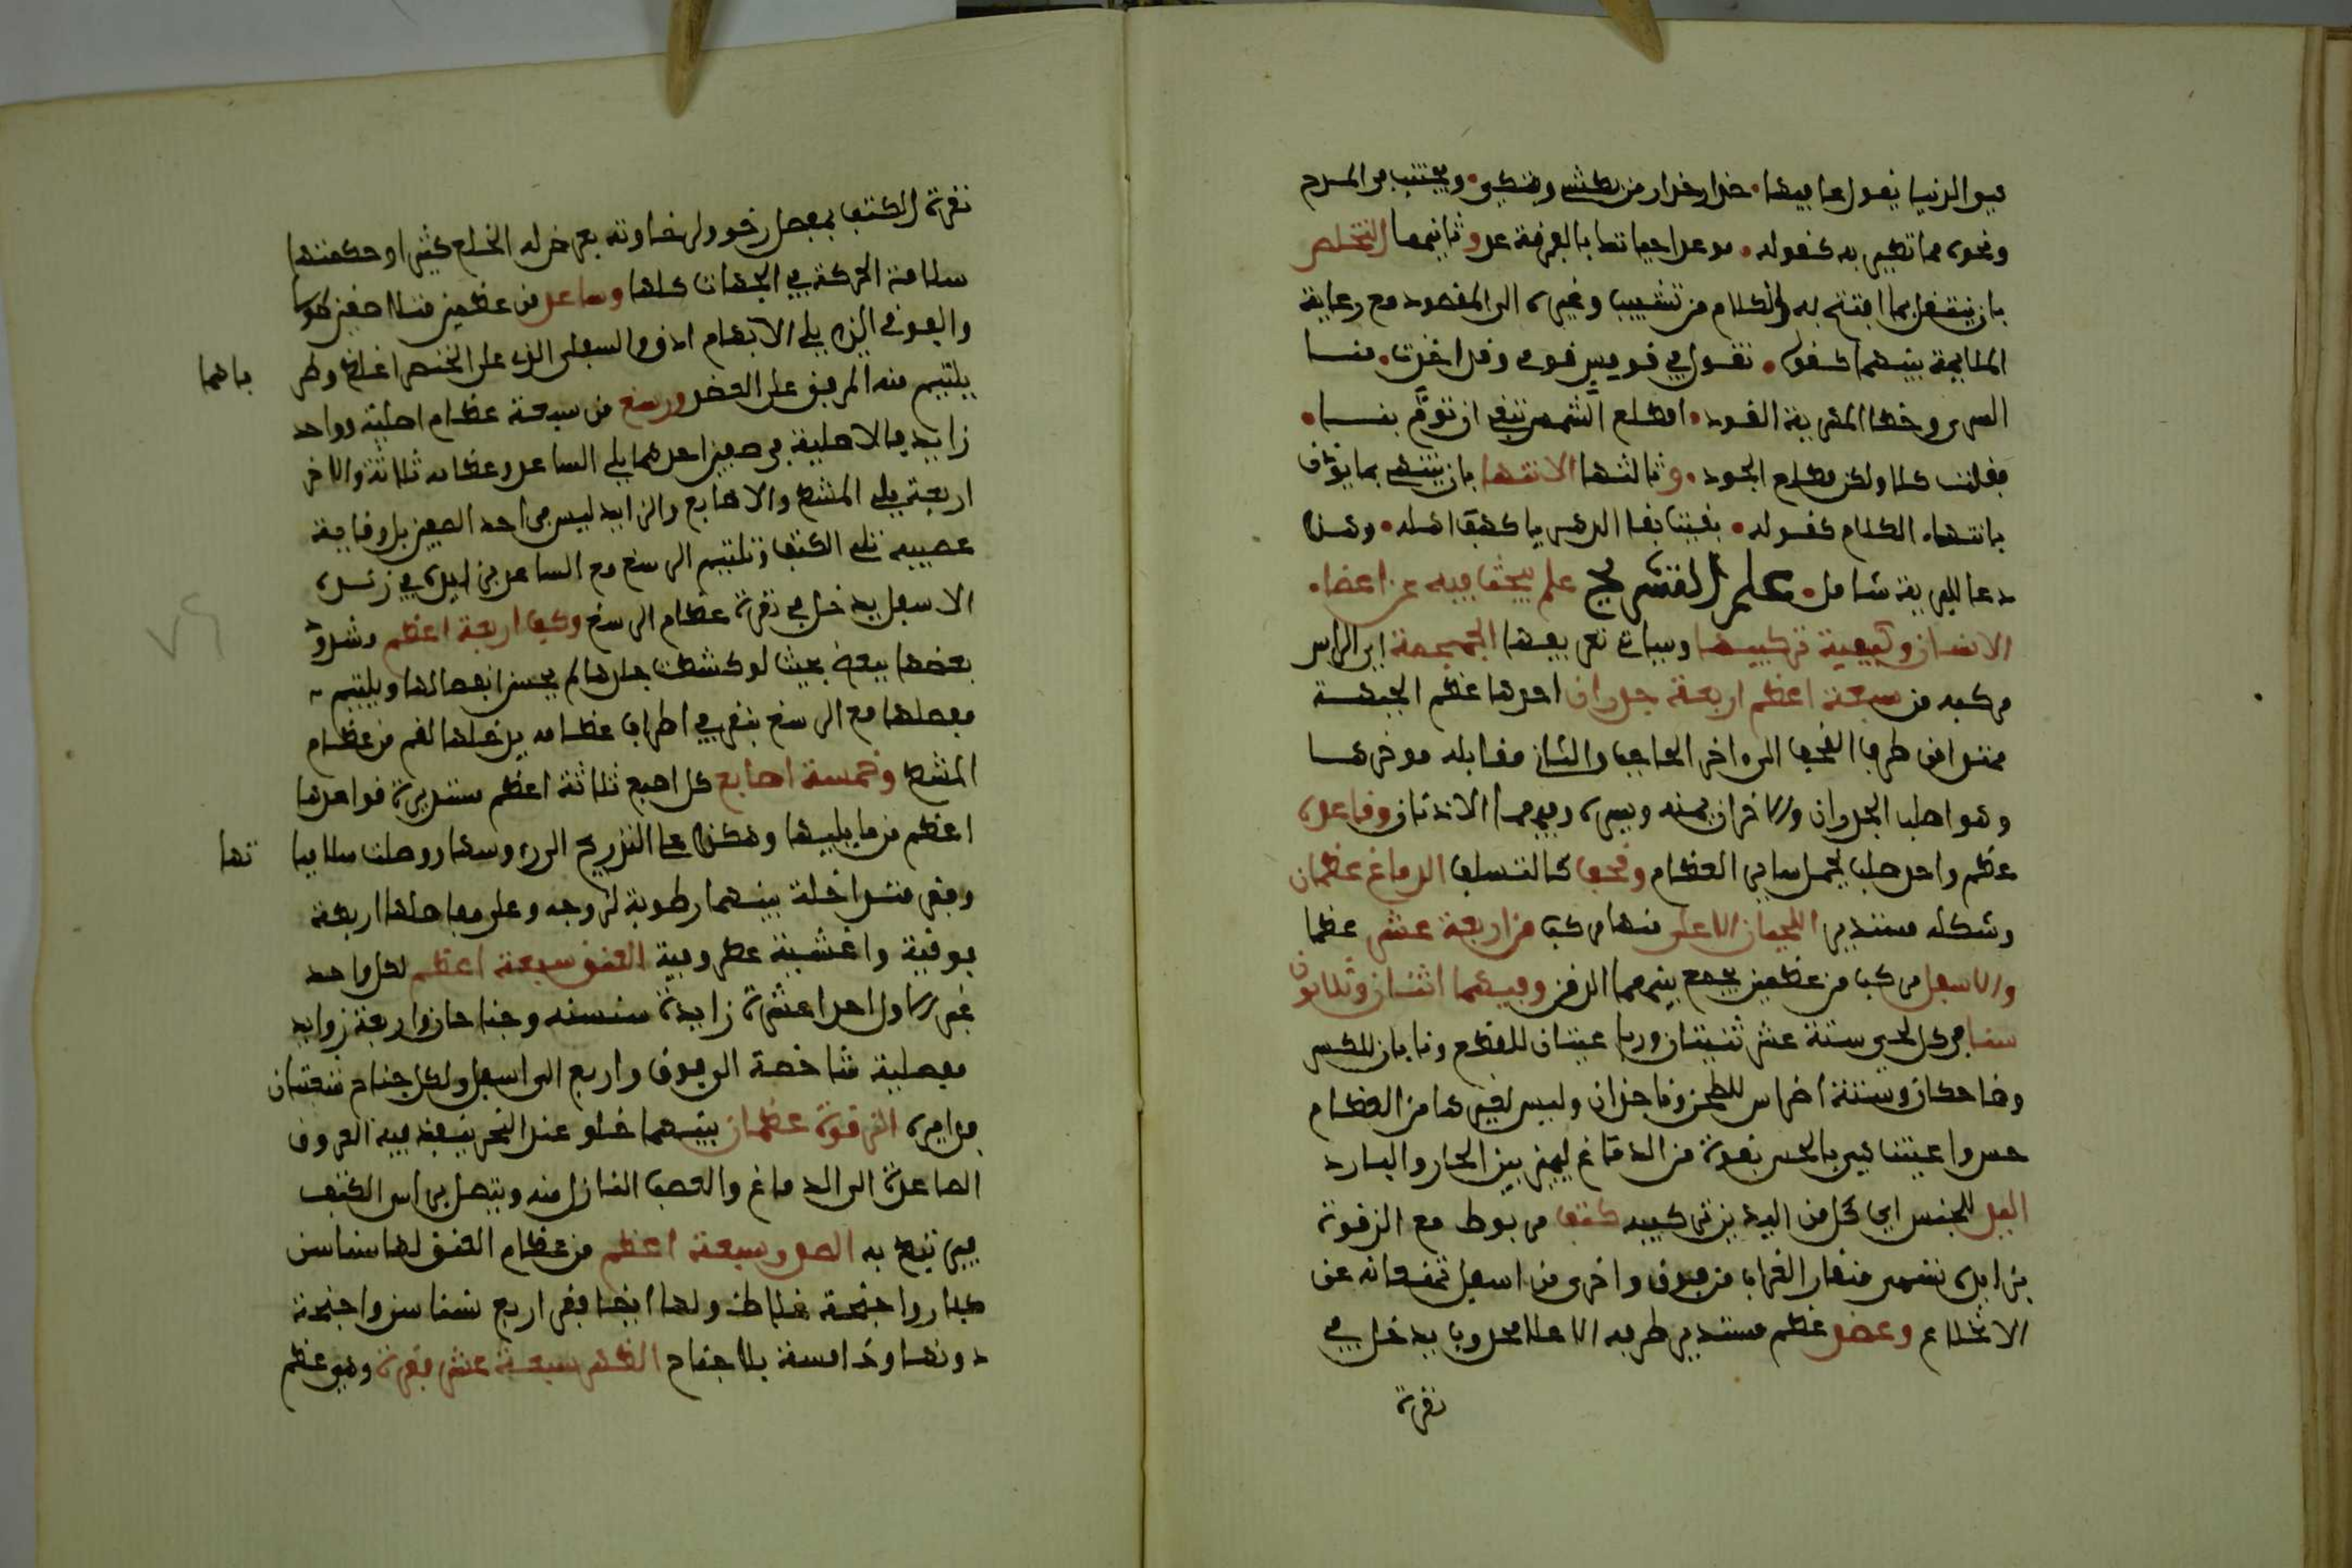 هي الدنيا يقول بما فيها حذار حذار من بطشي وفتكي ويجتنب في المدح
ونحوه مما تطير به كقوله موعد احبابنا بالفرقة غد وثانيهما التخلص
بان ينتقل مما افتتح به الكلام من تشبيب وغيره الى المقصود مع رعاية
الملايمة بينهما كقوله تقول في قومس قومي وقد اخذت منا
السرى وخطا المهرية القود امطلع الشمس تبغي ان تؤم بنا
فقلت كلا ولكن مطلع الجود وثالثها الانتها بان ينتهي بما يؤذن
بانتهاء الكلام كقوله بقيت بقا الدهر يا كهف اهله وهذا
دعا للبرية شامل علم التشريح علم يبحث فيه عن اعضاء
الانسان وكيفية تركيبها وبيان تعريفها الجمجمة اي الراس
مركبة من سبعة اعظم اربعة جدران احدها عظم الجبهة
ممتد من طرف القحف الى اخر الحاجب والثاني مقابله موخرها
وهو اصلب الجدران والاخران يمنه ويسره وفيهما الاذنان وقاعدة
عظم واحد صلب يحمل ساير العظام وقحف كالسقف الدماغ عظمان
وشكله مستدير اللحيان الاعلى منها مركب من اربعة عشر عظما
والاسفل مركب من عظمين يجمع بينهما الذقن وفيهما اثنان وثلاثون
سنا في كل لحي ستة عشر ثنيتان ورباعيتان للقطع ونابان للكسر
وضاحكان وستة اضراس للطحن وناجذان وليس لغيرها من العظام
حس واعينتا هي بالحس بقوة من الدماغ ليميز بين الحار والبارد
اليد للجنس اي كل من اليدين تركيبه كتف مربوط مع الترقوة
بزايدة تسمى منقار الغراب من فوق واخرى من اسفل تمنعانه عن
الانخلاع وعضد عظم مستدير طرفه الاعلا محدوب يدخل في
نقرة
نقرة الكتف بمفصل رخو ولرخاوته يعرض له الخلع كثيرا وحكمتها
سلامة الحركة في الجهات كلها وساعد من عظمين متلاصقين طولا
والفوقي الذي يلي الابهام ادق والسفلي الذي يلي الخنصر اغلظ وطر باهما
يلتيم منه المرفق على العضد ورسغ من سبعة عظام اصلية وواحد
زايد فالاصلية في صفين احدهما يلي الساعد وعظامه ثلاثة والاخر
اربعة يلي المشط والاصابع والزايد ليس في احد الصفين بل وقاية
عصبية تلي الكف ويلتيم الرسغ مع الساعد بزايدة في زنده
الاسفل يدخل في نقرة عظام الرسغ وكف اربعة اعظم مشدود
بعضها ببعض بحيث لو كشطت جلدها لم يحس انفصالها ويلتيم
مفصلها مع الرسغ بنقر في اطراف عظامه يدخلها لقم من عظام
المشط وخمسة اصابع كل اصبع ثلاثة اعظم مستديرة قواعدها
اعظم من ما يليها وهكذا على التدريج الى رءوسها ووصلت سلاميا تها
ونقر متداخلة بينهما رطوبة لزوجة وعلى مفاصلها اربعة
فوقية واغشية عظروفية العنق سبعة اعظم لكل واحد
غير الاول احدا عشرة زايدة سنسنه وجناحان واربعة زوايد
مفصلية شاخصة الى فوق واربع الى اسفل ولكل جناح شعبتان
وداميرة الترقوة عظمان بينهما خلو عند النحر ينفذ فيه العروق
الصاعدة الى الدماغ والعصب النازل منه ويتصل براس الكتف
فيرتبط به الصدر سبعة اعظم من عظام العنق لها سناسن
كبار واجنحة غلاظ ولها ايضا فقر اربع سناسن واجنحة
دونها وخامسة بلا جناح الظهر سبعة عشر فقرة وهو عظم